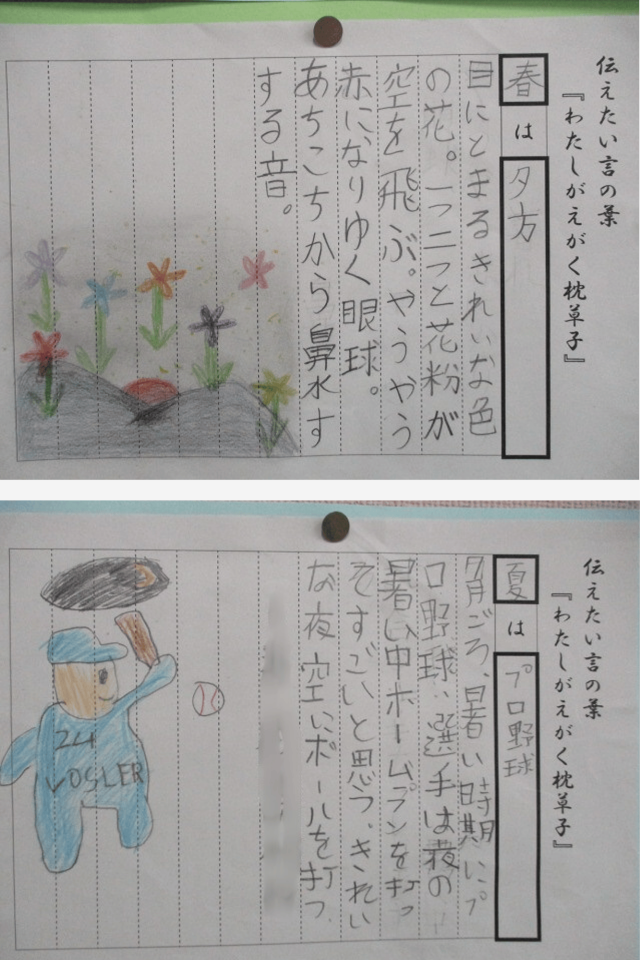 伝えたい言の葉
『わたしがえがく枕草子』
春は夕方
目にとまるきれいな色
の花。一つ二つと花粉が
空を飛ぶ。やうやう
赤になりゆく眼球。
あちこちから鼻水す
する音。
伝えたい言の葉
『わたしがえがく枕草子』
夏はプロ野球
7月ごろ、暑い時期にプ
ロ野球、選手は夜の
暑い中ホームランを打っ
てすごいと思う。きれい
な夜空にボールを打つ。
24
VOSLER